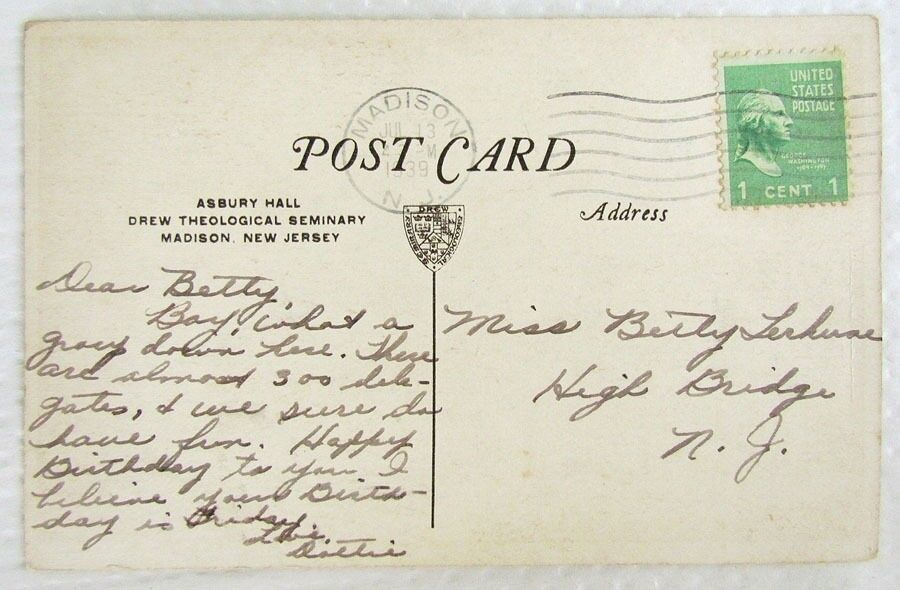 MADISON
JUL 13
M
1939
N.J.
UNITED
STATES
POSTAGE
GEORGE
WASHINGTON
1 CENT 1
POST CARD
ASBURY HALL
DREW THEOLOGICAL SEMINARY
MADISON, NEW JERSEY
DREW
THEOLOGICAL
SEMINARY
Address
Dear Betty,
Boy, what a
group down here. There
are almost 300 dele-
gates, & we sure do
have fun. Happy
Birthday to you I
believe your Birth-
day is Friday.
Love
Dottie
Miss Betty Terhune
High Bridge
N. J.